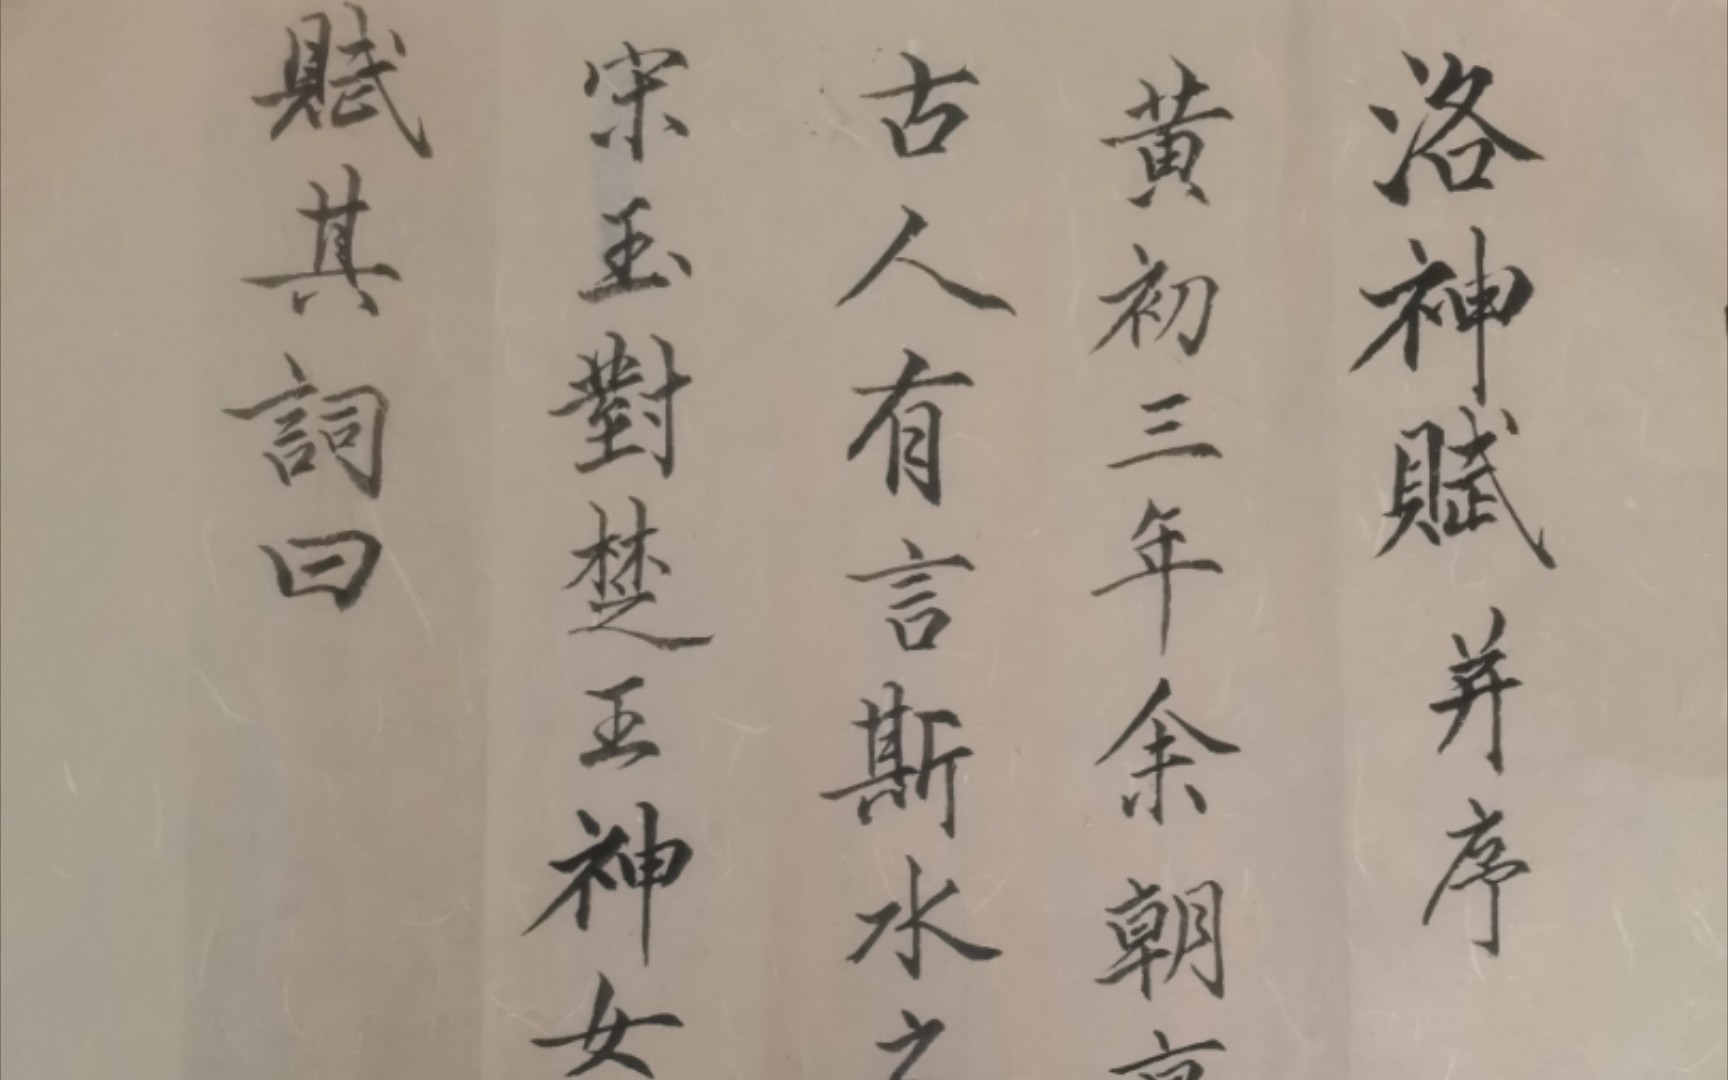 洛神賦并序
黄初三年余朝京
古人有言斯水之
宋玉對楚王神女
賦其詞曰